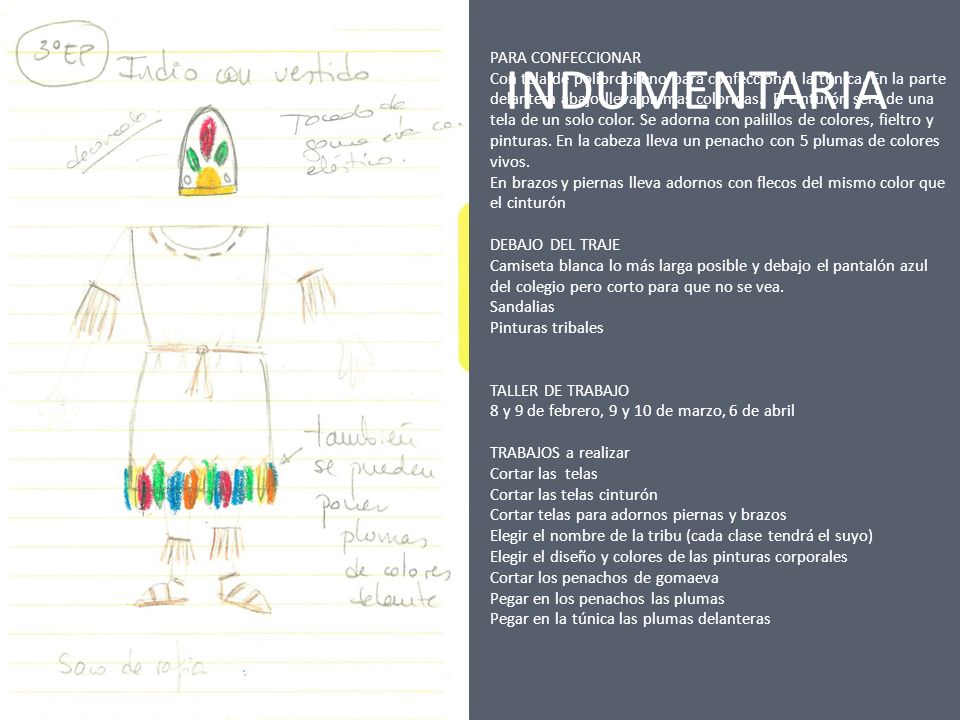 3º EP
Indio con vestido
decorado
Tocado de
goma eva con
elástico.
también
se pueden
poner
plumas
de colores
delante
Saco de rafia
INDUMENTARIA
PARA CONFECCIONAR
Con tela de polipropileno para confeccionar la túnica. En la parte
delantera abajo lleva plumas coloridas. El cinturón será de una
tela de un solo color. Se adorna con palillos de colores, fieltro y
pinturas. En la cabeza lleva un penacho con 5 plumas de colores
vivos.
En brazos y piernas lleva adornos con flecos del mismo color que
el cinturón
DEBAJO DEL TRAJE
Camiseta blanca lo más larga posible y debajo el pantalón azul
del colegio pero corto para que no se vea.
Sandalias
Pinturas tribales
TALLER DE TRABAJO
8 y 9 de febrero, 9 y 10 de marzo, 6 de abril
TRABAJOS a realizar
Cortar las telas
Cortar las telas cinturón
Cortar telas para adornos piernas y brazos
Elegir el nombre de la tribu (cada clase tendrá el suyo)
Elegir el diseño y colores de las pinturas corporales
Cortar los penachos de gomaeva
Pegar en los penachos las plumas
Pegar en la túnica las plumas delanteras